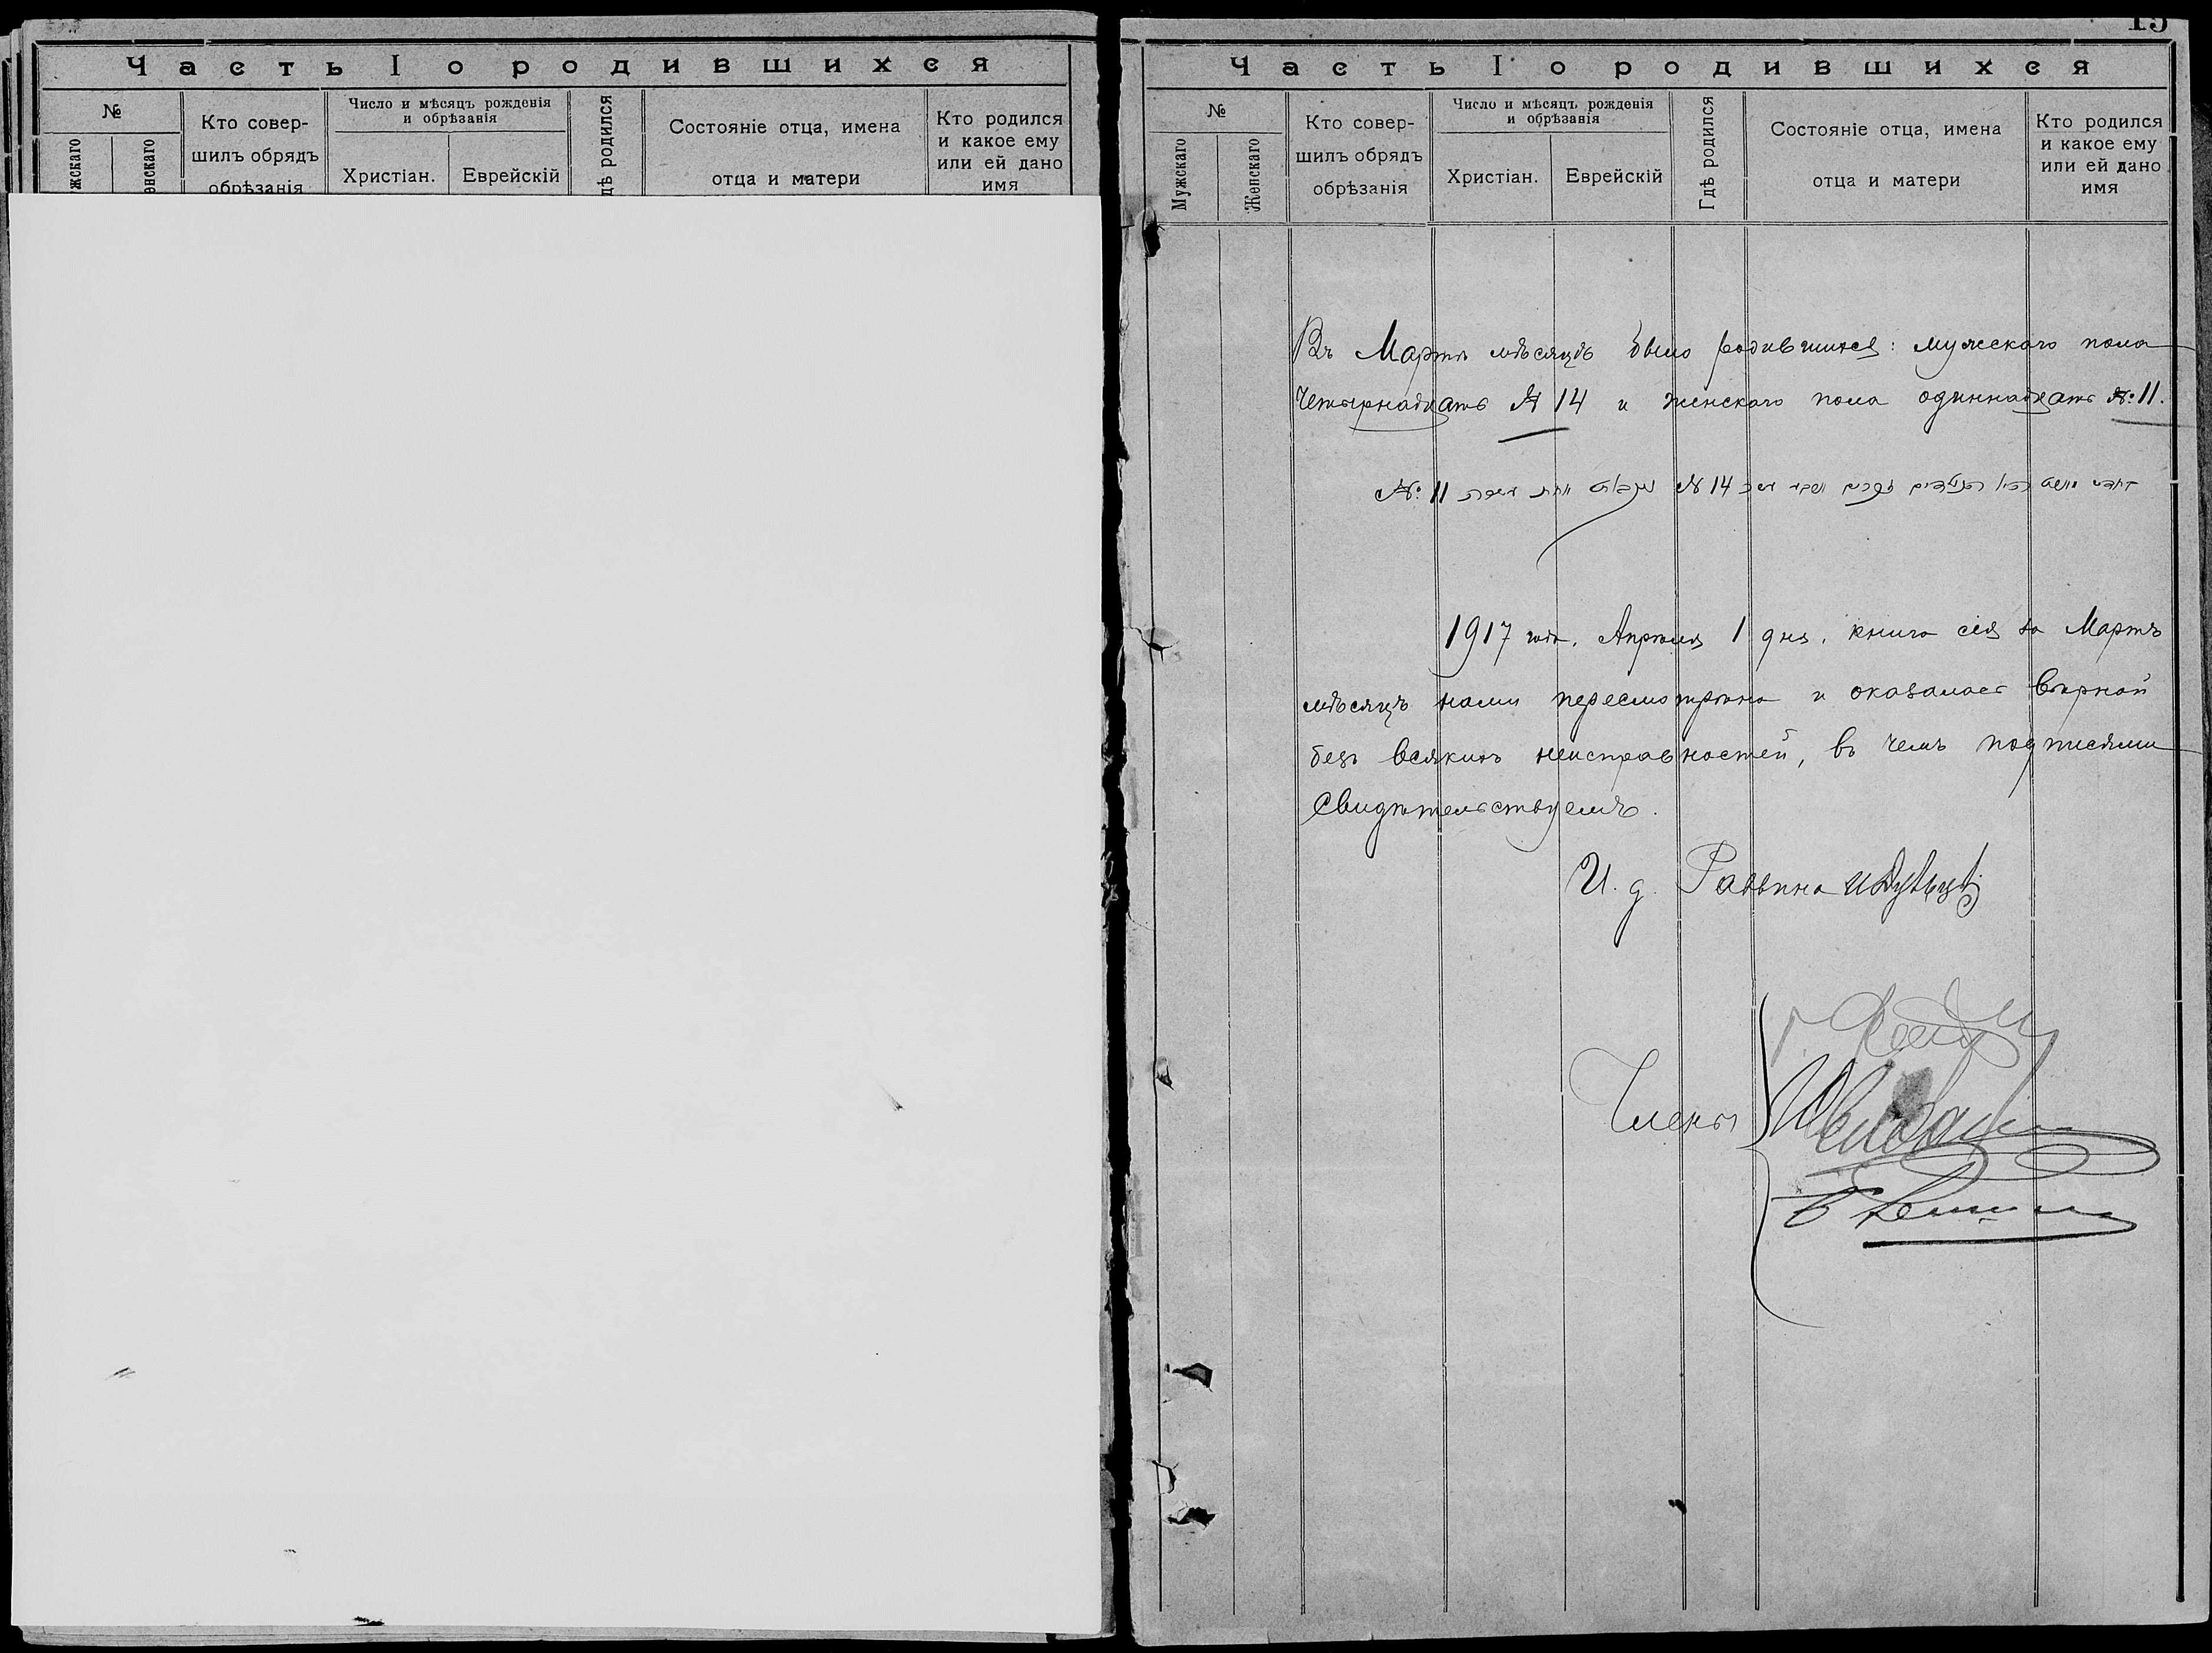 Часть I о родившихся
№
Кто совер-
шилъ обрядъ
обрѣзанія
Число и мѣсяцъ рожденія
и обрѣзанія
Христіан.
Еврейскій
родился
Состояніе отца, имена
отца и матери
Кто родился
и какое ему
или ей дано
имя
15
Часть I о родившихся
№
Мужскаго
Женскаго
Кто совер-
шилъ обрядъ
обрѣзанія
Число и мѣсяцъ рожденія
и обрѣзанія
Христіан.
Еврейскій
Гдѣ родился
Состояніе отца, имена
отца и матери
Кто родился
и какое ему
или ей дано
имя
Въ Мартѣ мѣсяцѣ было родившихся: мужского пола
четырнадцать № 14 и женского пола одиннадцать №: 11.
№ 14
№: 11
1917 года. Апрѣля 1 дня. книга сія за Мартъ
мѣсяцъ нами пересмотрѣна и оказалась вѣрной
безъ всякихъ неисправностей, въ чемъ подписями
свидѣтельствуемъ.
И. д. Раввина
Члены